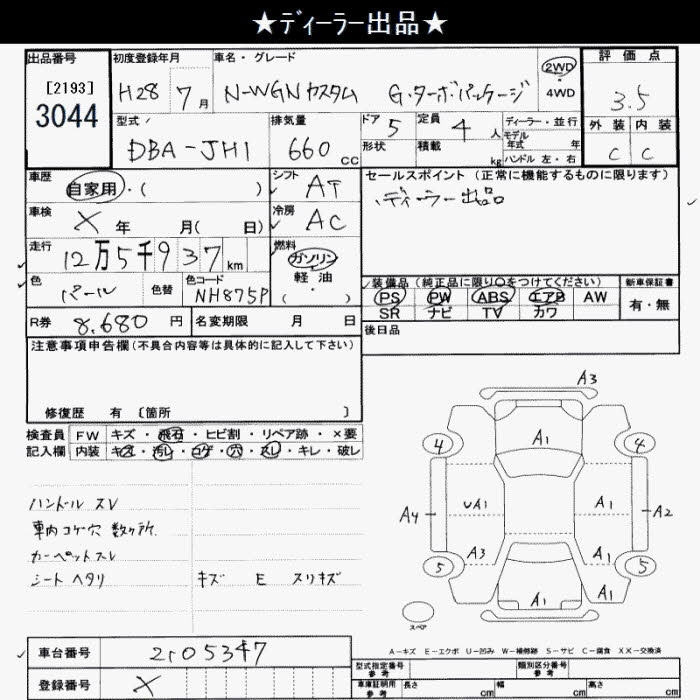 ★ディーラー出品★
出品番号
[2193]
3044
初度登録年月
H28 7 月
車名・グレード
N-WGN カスタム G・ターボパッケージ
2WD
4WD
評価点
3.5
外装 内装
C C
型式
DBA-JH1
排気量
660 cc
ドア 5
形状
定員 4 人
積載 kg
ディーラー・並行
モデル
年式 年
ハンドル 左・右
車歴
自家用・( )
シフト
AT
車検
X 年 月( 日)
冷房
AC
走行
12万5千937 km
燃料
ガソリン
軽油
( ・ )
色
パール
色替
色コード
NH875P
R券 8,680 円
名変期限 月 日
セールスポイント (正常に機能するものに限ります)
ディーラー出品
装備品 (純正品に限り○をつけてください)
PS PW ABS エアB AW
SR ナビ TV カワ
新車保証書
有・無
後日品
注意事項申告欄 (不具合内容等は具体的に記入して下さい)
修復歴 有 〔箇所 〕
検査員 FW キズ・飛石・ヒビ割・リペア跡・×要
記入欄 内装 キズ・汚レ・コゲ・穴・スレ・キレ・破レ
ハンドル スレ
車内コゲ穴 数ヶ所.
カーペットスレ
シート ヘタリ
キズ E スリキズ
A3
4 A1 4
A4 UA1 A1 A2
A3 A1
5 5
A1 A1
スペア
A-キズ E-エクボ U-凹み W-補修跡 S-サビ C-腐食 XX-交換済
車台番号 2105347
登録番号 X
型式指定番号
参考
類別区分番号
参考
車庫証明用
参考
長さ cm 幅 cm 高さ cm